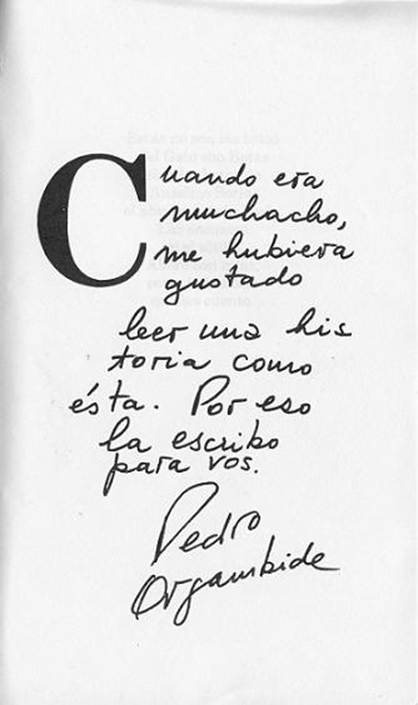 Cuando era
muchacho,
me hubiera
gustado
leer una his
toria como
ésta. Por eso
la escribo
para vos.
Pedro
Orgambide